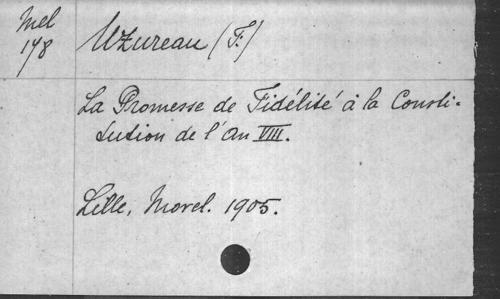 Mel
148
Uzureau (F.)
La Promesse de Fidélité à la Consti-
tution de l'An VIII.
Lille, Morel. 1905.